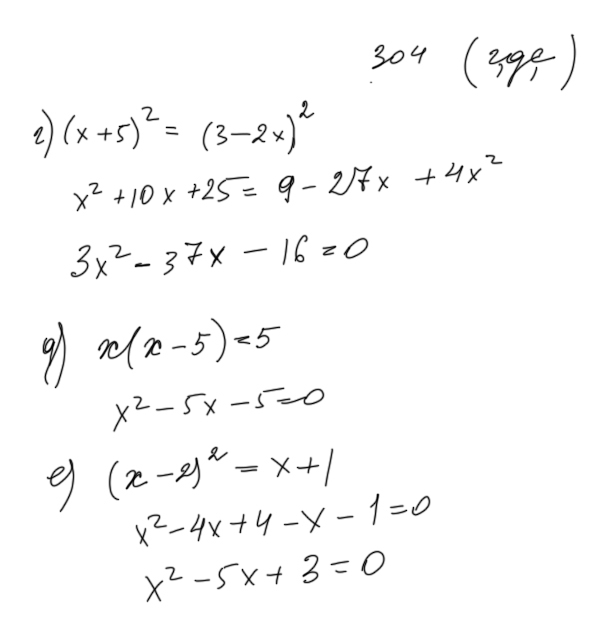 304 (г,д,е)
г) (x+5)² = (3-2x)²
x² + 10x + 25 = 9 - 27x + 4x²
3x² - 37x - 16 = 0
д) x(x-5) = 5
x² - 5x - 5 = 0
е) (x-2)² = x+1
x² - 4x + 4 - x - 1 = 0
x² - 5x + 3 = 0